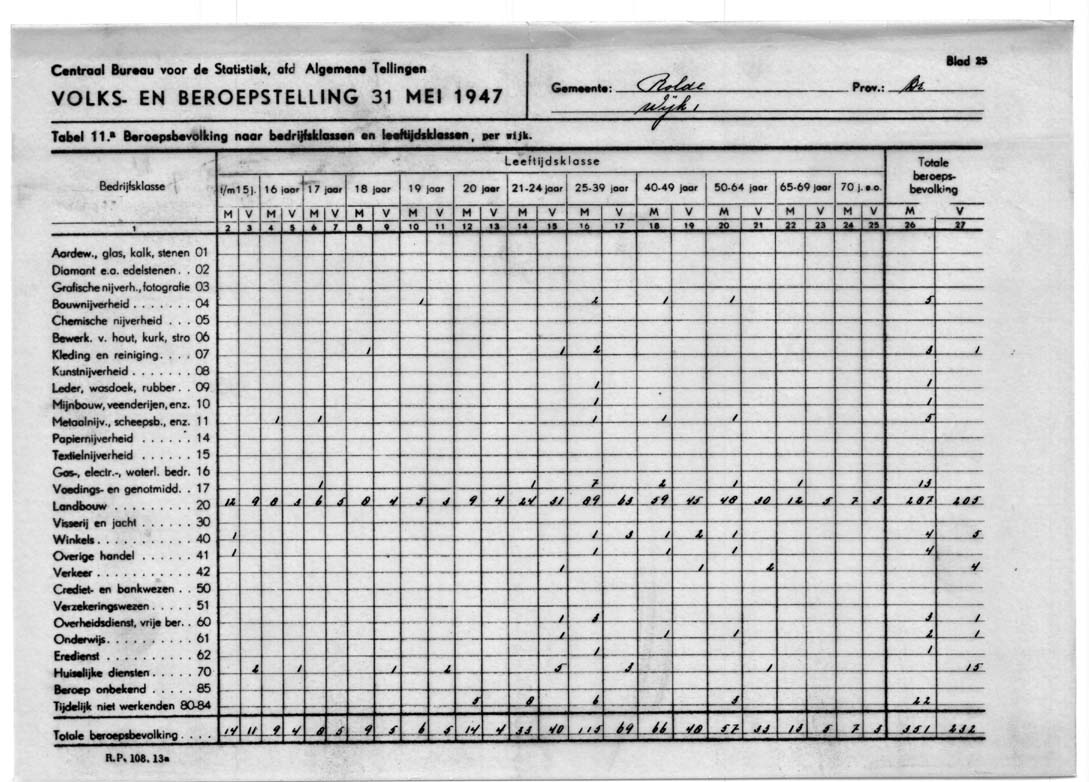 Centraal Bureau voor de Statistiek, afd Algemene Tellingen
Blad 25
VOLKS- EN BEROEPSTELLING 31 MEI 1947
Gemeente: Rolde
Prov.: Dr.
Wijk 1
Tabel 11.ª Beroepsbevolking naar bedrijfsklassen en leeftijdsklassen, per wijk.
Bedrijfsklasse Leeftijdsklasse Totale beroepsbevolking
t/m15 j. 16 jaar 17 jaar 18 jaar 19 jaar 20 jaar 21-24 jaar 25-39 jaar 40-49 jaar 50-64 jaar 65-69 jaar 70 j. e.o.
M V M V M V M V M V M V M V M V M V M V M V M V M V
1 2 3 4 5 6 7 8 9 10 11 12 13 14 15 16 17 18 19 20 21 22 23 24 25 26 27
Aardew., glas, kalk, stenen 01
Diamant e.a. edelstenen . . 02
Grafische nijverh., fotografie 03
Bouwnijverheid . . . . . . . 04 1 2 1 1 5
Chemische nijverheid . . . 05
Bewerk. v. hout, kurk, stro 06
Kleding en reiniging. . . . 07 1 1 2 3 1
Kunstnijverheid . . . . . . . 08
Leder, wasdoek, rubber. . 09 1 1
Mijnbouw, veenderijen, enz. 10 1 1
Metaalnijv., scheepsb., enz. 11 1 1 1 1 1 5
Papiernijverheid . . . . . . 14
Textielnijverheid . . . . . . 15
Gas-, electr.-, waterl. bedr. 16
Voedings- en genotmidd. . 17 1 1 7 2 1 1 13
Landbouw . . . . . . . . . 20 12 9 8 3 6 5 8 4 5 3 9 4 24 31 89 63 59 45 48 30 12 5 7 3 287 205
Visserij en jacht . . . . . . 30
Winkels . . . . . . . . . . . 40 1 1 3 1 2 1 4 5
Overige handel . . . . . . . 41 1 1 1 1 4
Verkeer . . . . . . . . . . . 42 1 1 2 4
Crediet- en bankwezen . . 50
Verzekeringswezen . . . . . 51
Overheidsdienst, vrije ber. . 60 1 3 3 1
Onderwijs. . . . . . . . . . 61 1 1 1 2 1
Eredienst . . . . . . . . . . 62 1 1
Huiselijke diensten . . . . . 70 2 1 1 2 5 3 1 15
Beroep onbekend . . . . . 85
Tijdelijk niet werkenden 80-84 5 8 6 3 22
Totale beroepsbevolking . . . 14 11 9 4 8 5 9 5 6 5 14 4 33 40 115 69 66 48 57 33 13 5 7 3 351 232
R.P. 108. 13a